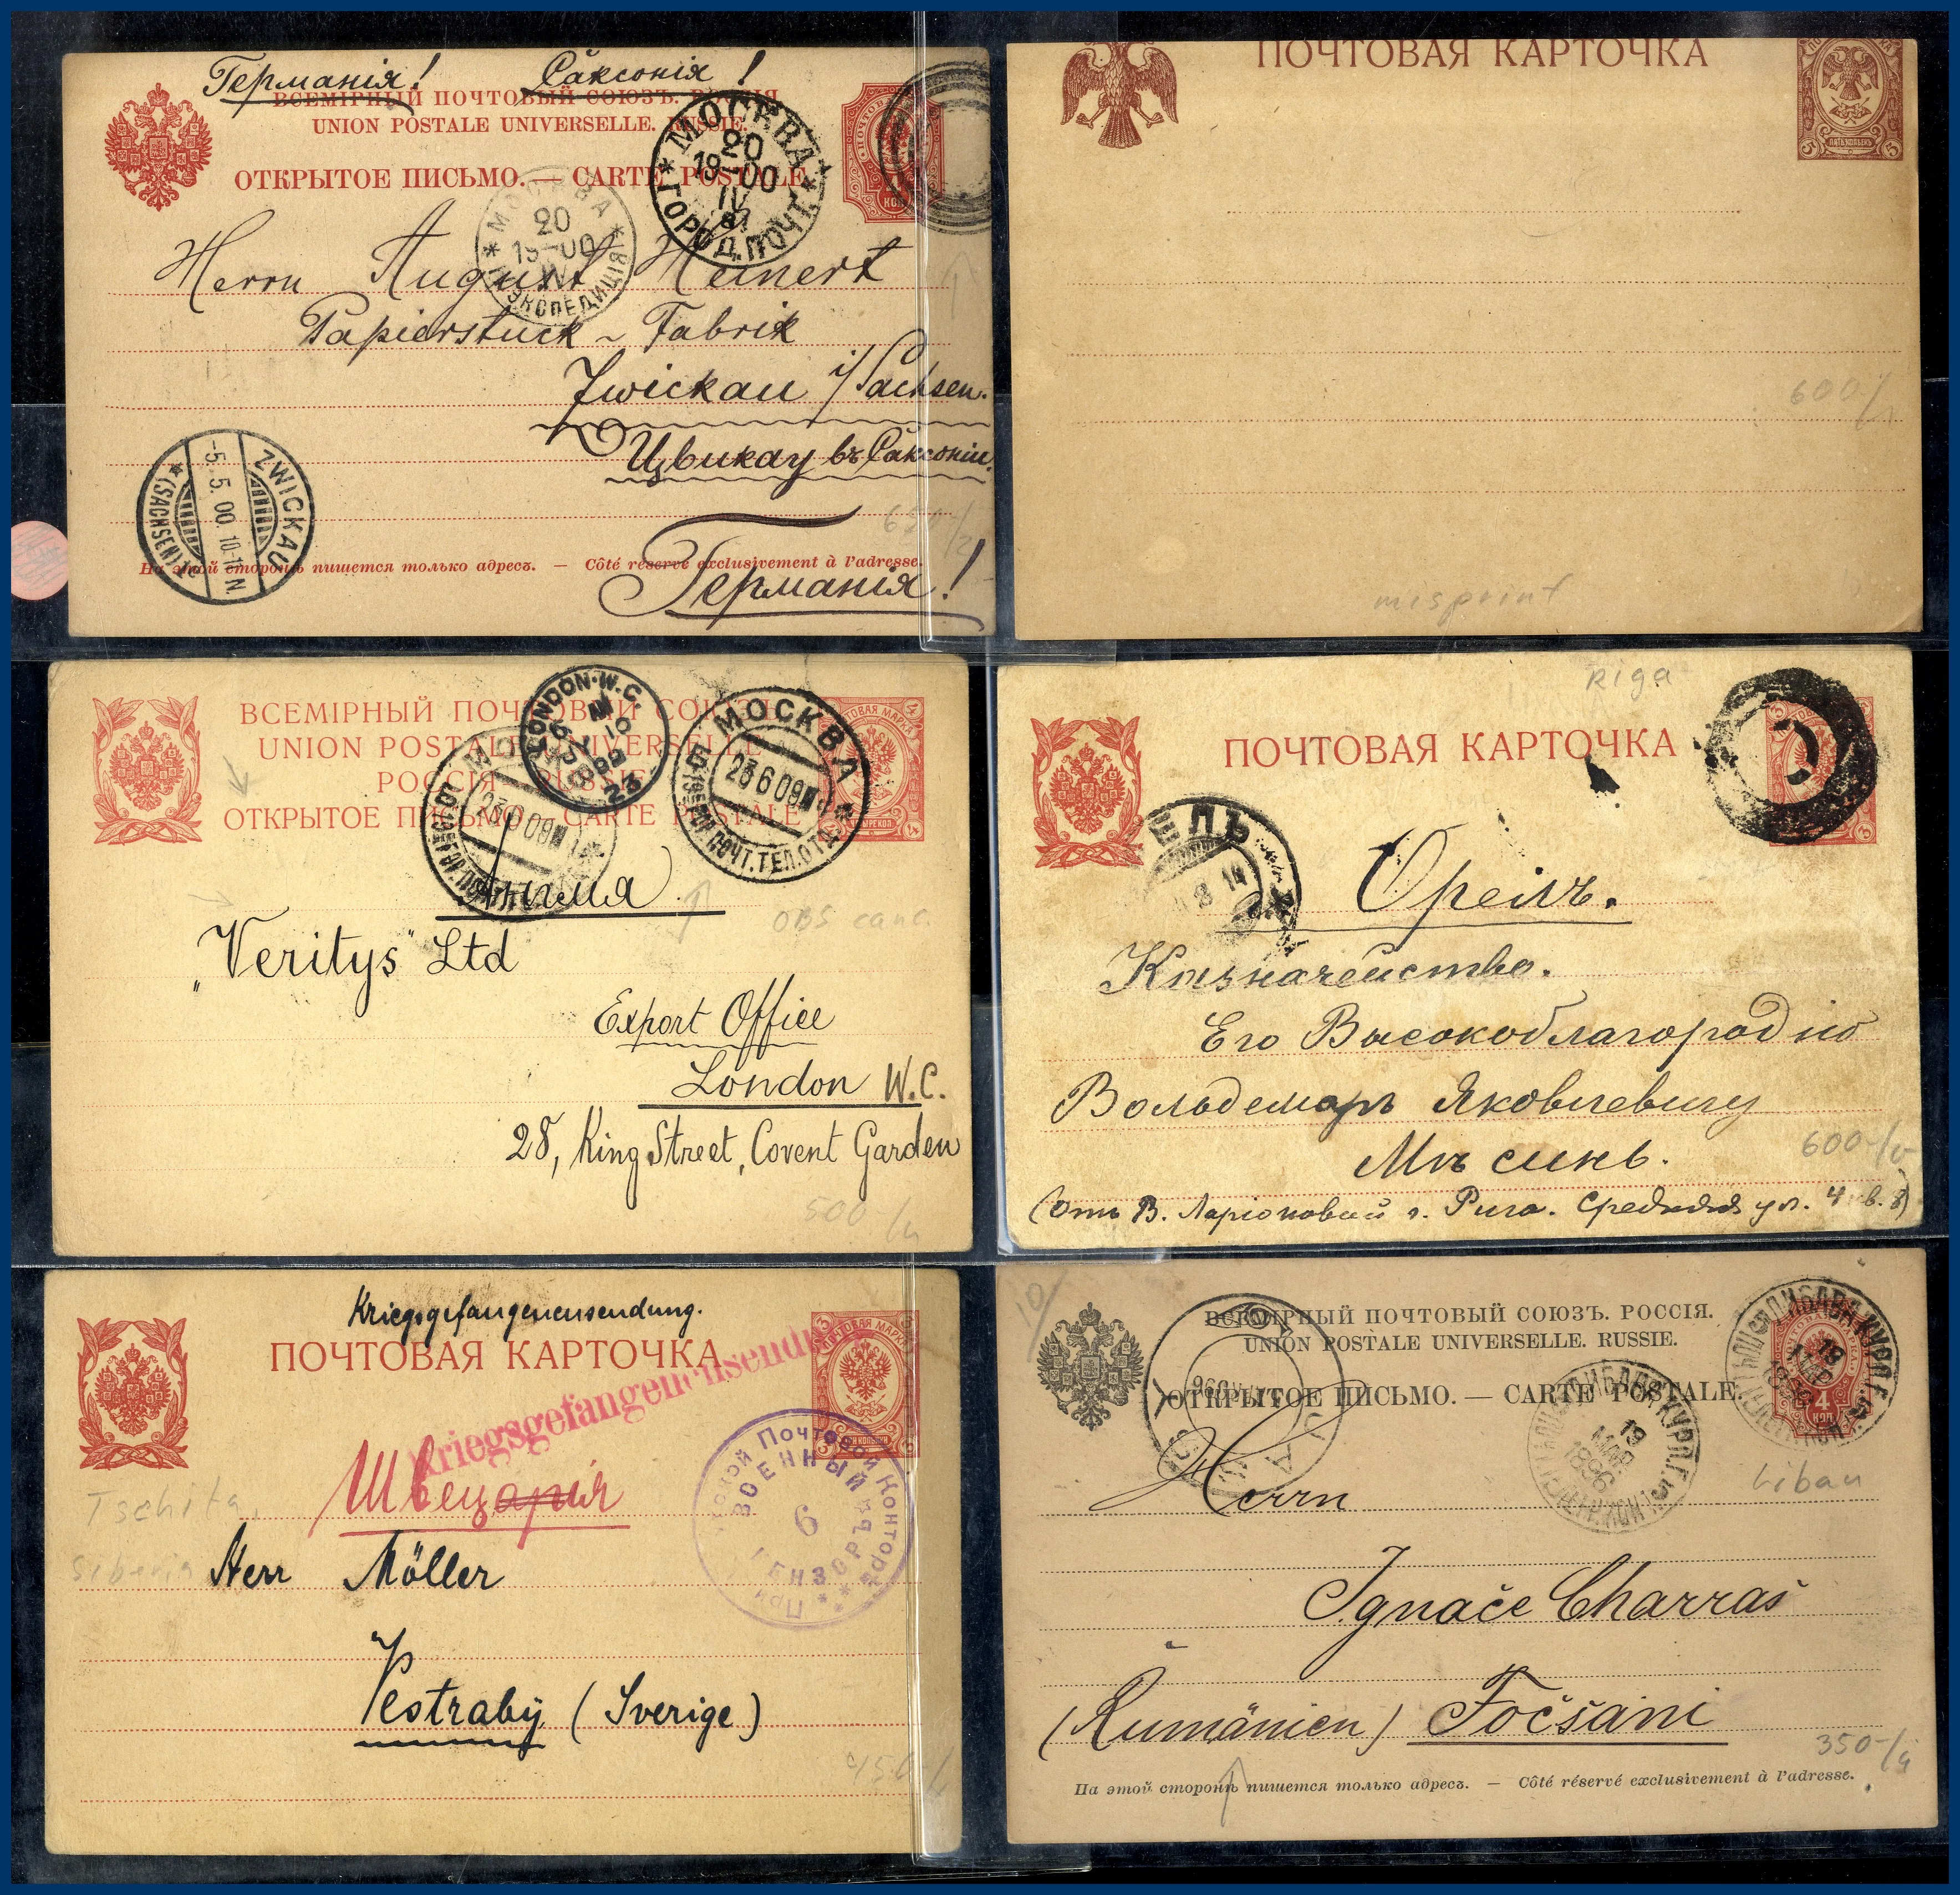 Германія! Саксонія!
ВСЕМІРНЫЙ ПОЧТОВЫЙ СОЮЗЪ. РОССІЯ
UNION POSTALE UNIVERSELLE. RUSSIE.
ОТКРЫТОЕ ПИСЬМО. — CARTE POSTALE
МОСКВА
20
19-00
IV
ГОРОД. ПОЧТ.
МОСКВА
20
19-00
IV
ЭКСПЕДИЦІЯ
Herrn August Heinert
Papierstuck - Fabrik
Zwickau i/Sachsen.
Цвикау въ Саксоніи.
Германія!
ZWICKAU
-5.5.00.10-11N.
* (SACHSEN)
На этой сторонѣ пишется только адресъ. — Côté réservé exclusivement à l'adresse.
ПОЧТОВАЯ КАРТОЧКА
5 ПЯТЬ КОПѢЕКЪ 5
600-/
misprint
ВСЕМІРНЫЙ ПОЧТОВЫЙ СОЮЗЪ
UNION POSTALE UNIVERSELLE
РОССІЯ RUSSIE
ОТКРЫТОЕ ПИСЬМО CARTE POSTALE
LONDON.W.C.
МОСКВА
23609
ПОЧТ.ТЕЛ.ОТД.
Англія
OBS canc.
"Veritys" Ltd
Export Office
London W.C.
28, King Street, Covent Garden
500-/
Riga
ПОЧТОВАЯ КАРТОЧКА
Орелъ.
Казначейство.
Его Высокоблагородію
Вольдемаръ Яковлевичу
600-/
(Отъ В. Ларіоновой г. Рига. Средняя ул. 4 кв. 8)
Kriegsgefangenensendung.
ПОЧТОВАЯ КАРТОЧКА
Kriegsgefangenensendung
Швеція
ВОЕННЫЙ
6
ЦЕНЗОРЪ
Почтовой Конторѣ
При
Tschita,
Siberia
Herr Möller
Vestraby (Sverige)
450-/
10/
ВСЕМІРНЫЙ ПОЧТОВЫЙ СОЮЗЪ. РОССІЯ.
UNION POSTALE UNIVERSELLE. RUSSIE.
ОТКРЫТОЕ ПИСЬМО. — CARTE POSTALE.
4
КОП
ЛИБАВА КУРЛ.Г.
19
МАР
1896
Libau
Herrn
Ignače Charras
(Rumänien) Focšani
350-/
На этой сторонѣ пишется только адресъ. — Côté réservé exclusivement à l'adresse.